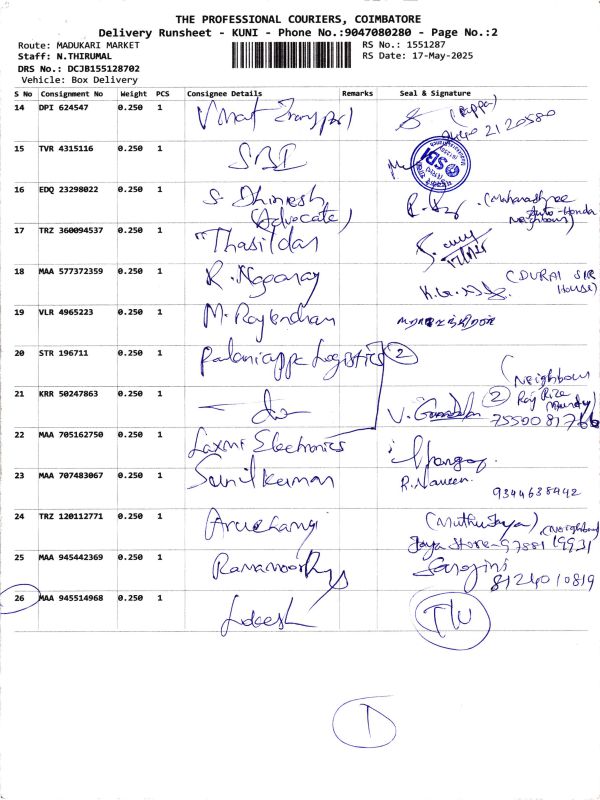 THE PROFESSIONAL COURIERS, COIMBATORE
Delivery Runsheet - KUNI - Phone No.:9047080280 - Page No.:2
Route: MADUKARI MARKET
RS No.: 1551287
Staff: N.THIRUMAL
RS Date: 17-May-2025
DRS No.: DCJB155128702
Vehicle: Box Delivery
S No Consignment No Weight PCS Consignee Details Remarks Seal & Signature
14 DPI 624547 0.250 1
15 TVR 4315116 0.250 1 SBI
SBI
16 EDQ 23298022 0.250 1 S Dhinesh
(Advocate)
(Maharashtree
Auto-Honda
Neighbour)
17 TRZ 360094537 0.250 1 Thasildar
18 MAA 577372359 0.250 1 R.
(DURAI SIR
House)
19 VLR 4965223 0.250 1 M. Rajendran
20 STR 196711 0.250 1 Palaniappa Logistics 2
(Neighbour
21 KRR 50247863 0.250 1 2
22 MAA 705162750 0.250 1 Laxmi Electronics
23 MAA 707483067 0.250 1 Sunil kumar R. Naveen
9344638442
24 TRZ 120112771 0.250 1 (Neighbour)
Jaya Store - 9788119931
25 MAA 945442369 0.250 1 Ramamoorthy Sarojini
8124010819
26 MAA 945514968 0.250 1 Lokesh